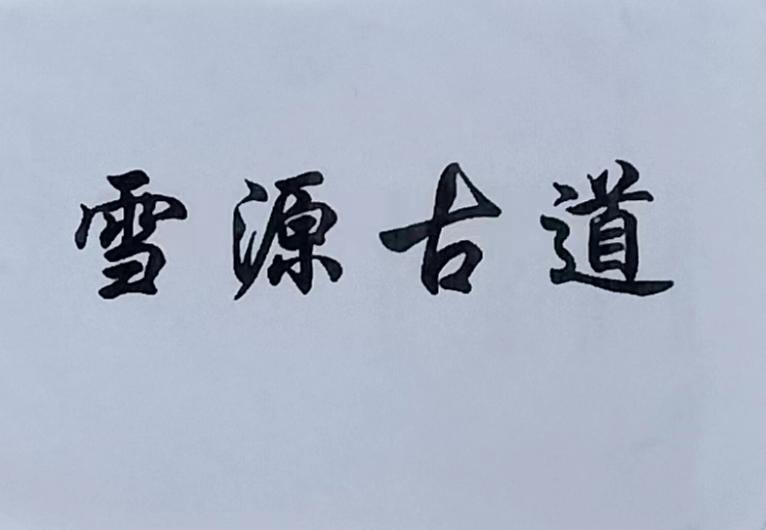 雪源古道